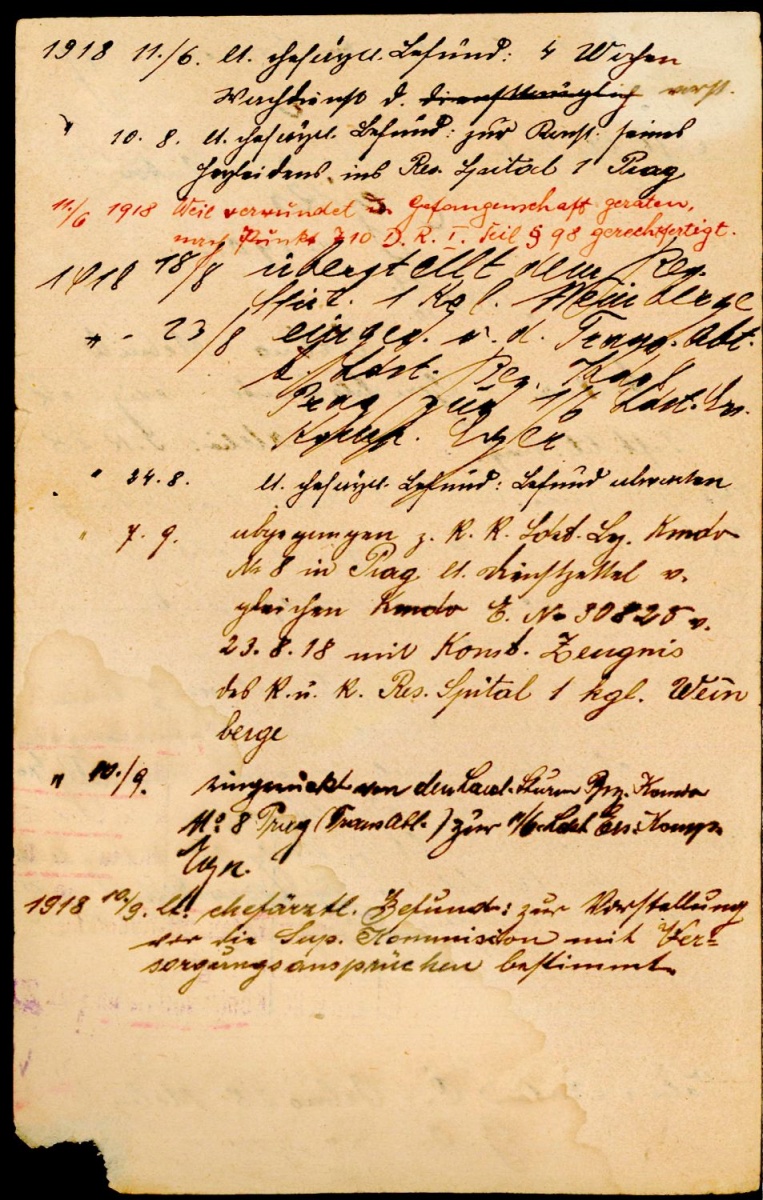 1918 11./6. lt. chefärztl. Befund: 4 Wochen
Wachdienst d. diensttauglich
" 10. 8. lt. chefärztl. Befund: zur Konst. seines
ins Res. Spital 1 Prag
11./6 1918 Weil verwundet in Gefangenschaft geraten,
nach Punkt 710 D. R. I. Teil § 98 gerechtfertigt.
1918 18/8 überstellt dem Res.
Spit. 1 Kgl. Weinberge
" - 23/8 einger. v. d. Trans. Abt.
Prag zur 1/6 Ldst.
Komp. Eger
" 24. 8. lt. chefärztl. Befund: Befund abwarten
" 7. 9. abgegangen z. K. K. Ldst. Bz. Kmdo
No 8 in Prag lt. Dienstzettel v.
gleichen Kmdo E. No 30825 v.
23. 8. 18 mit Konst. Zeugnis
des K. u. K. Res. Spital 1 kgl. Wein
berge
" 10./9. eingerückt von dem Land. Sturm Bez. Komdo
No 8 Prag (Trans Abt.) zur Ldst Ers. Komp.
1918 10/9. lt. chefärztl. Befund: zur Vorstellung
vor die Sup. Kommission mit Ver=
sorgungsansprüchen bestimmt.